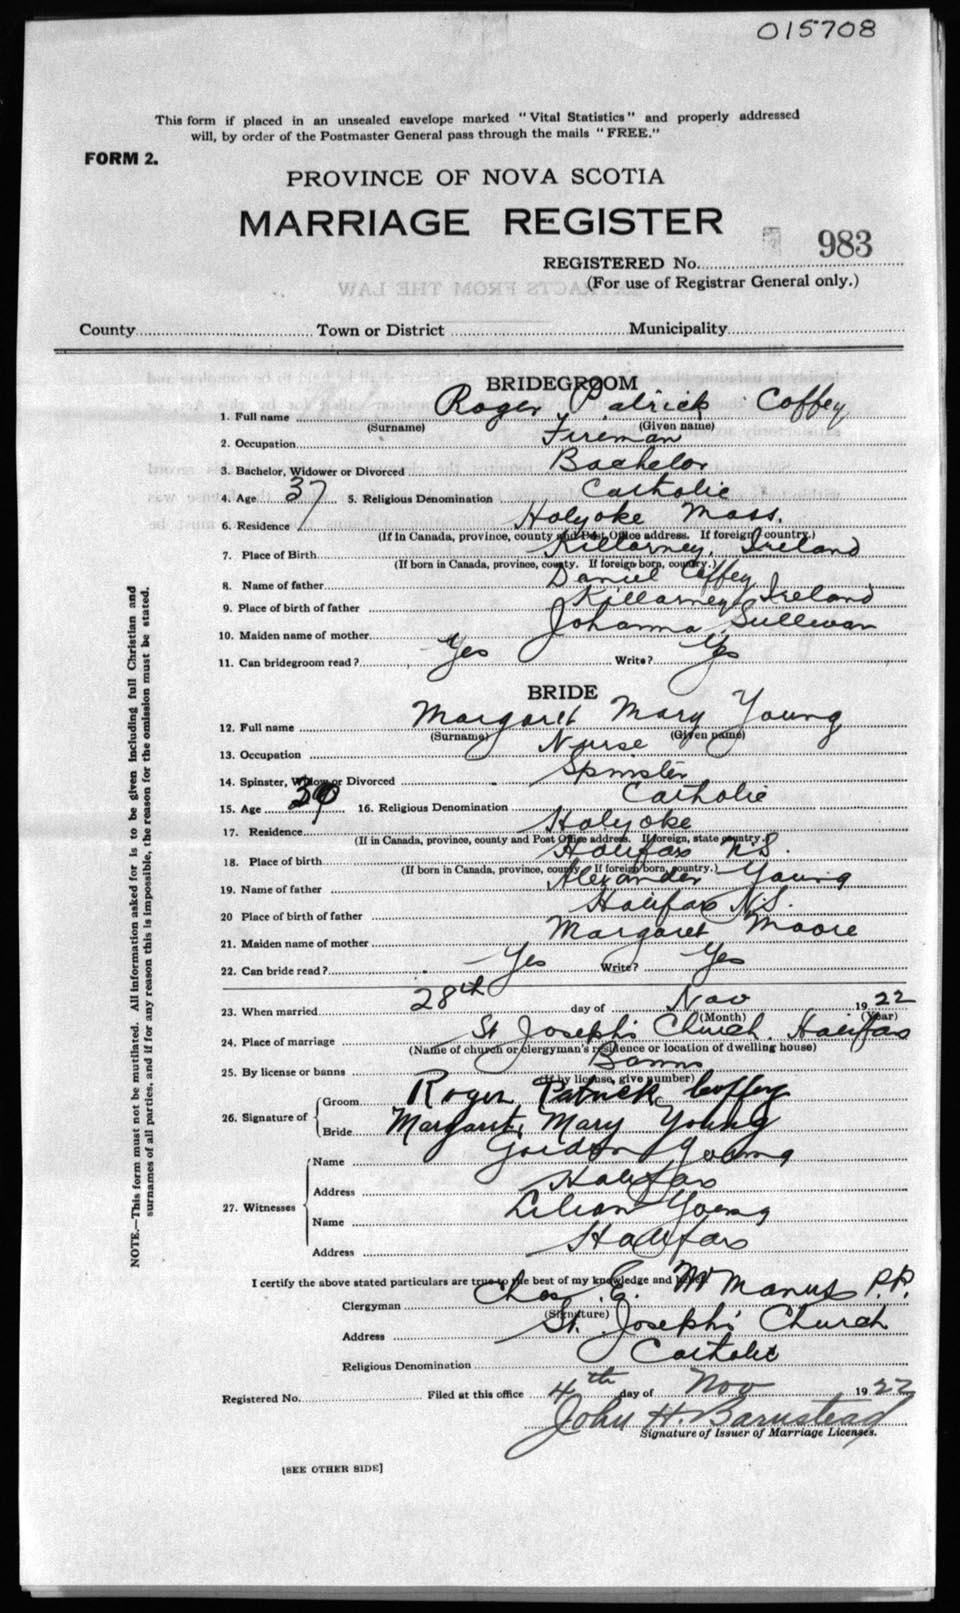 015708
This form if placed in an unsealed envelope marked "Vital Statistics" and properly addressed
will, by order of the Postmaster General pass through the mails "FREE."
FORM 2.
PROVINCE OF NOVA SCOTIA
MARRIAGE REGISTER
983
REGISTERED No.
(For use of Registrar General only.)
County Town or District Municipality
BRIDEGROOM
1. Full name Roger Patrick Coffey
(Surname) (Given name)
2. Occupation Fireman
3. Bachelor, Widower or Divorced Bachelor
4. Age 37 5. Religious Denomination Catholic
6. Residence Holyoke Mass.
(If in Canada, province, county and Post Office address. If foreign country.)
7. Place of Birth Killarney, Ireland
(If born in Canada, province, county. If foreign born, country.)
8. Name of father Daniel Coffey
9. Place of birth of father Killarney Ireland
10. Maiden name of mother Johanna Sullivan
11. Can bridegroom read? Yes Write? Yes
BRIDE
12. Full name Margaret Mary Young
(Surname) (Given name)
13. Occupation Nurse
14. Spinster, Widow or Divorced Spinster
15. Age 16. Religious Denomination Catholic
17. Residence Holyoke
(If in Canada, province, county and Post Office address. If foreign, state country.)
18. Place of birth Halifax N.S.
(If born in Canada, province, county. If foreign born, country.)
19. Name of father Alexander Young
20 Place of birth of father Halifax N.S.
21. Maiden name of mother Margaret Moore
22. Can bride read? Yes Write? Yes
23. When married 28th day of Nov 1922
(Month) (Year)
24. Place of marriage St Joseph's Church, Halifax
(Name of church or clergyman's residence or location of dwelling house)
25. By license or banns Banns
(If by license, give number)
26. Signature of Groom Roger Patrick Coffey
Bride Margaret Mary Young
27. Witnesses Name Gordon Young
Address Halifax
Name Lilian Young
Address Halifax
I certify the above stated particulars are true to the best of my knowledge and belief.
Clergyman Chas. E. McManus P.P.
(Signature)
Address St. Joseph's Church
Religious Denomination Catholic
Registered No. Filed at this office 4th day of Nov 1922
John H. Barnstead
Signature of Issuer of Marriage Licenses.
[SEE OTHER SIDE]
NOTE.—This form must not be mutilated. All information asked for is to be given including full Christian and
surnames of all parties, and if for any reason this is impossible, the reason for the omission must be stated.